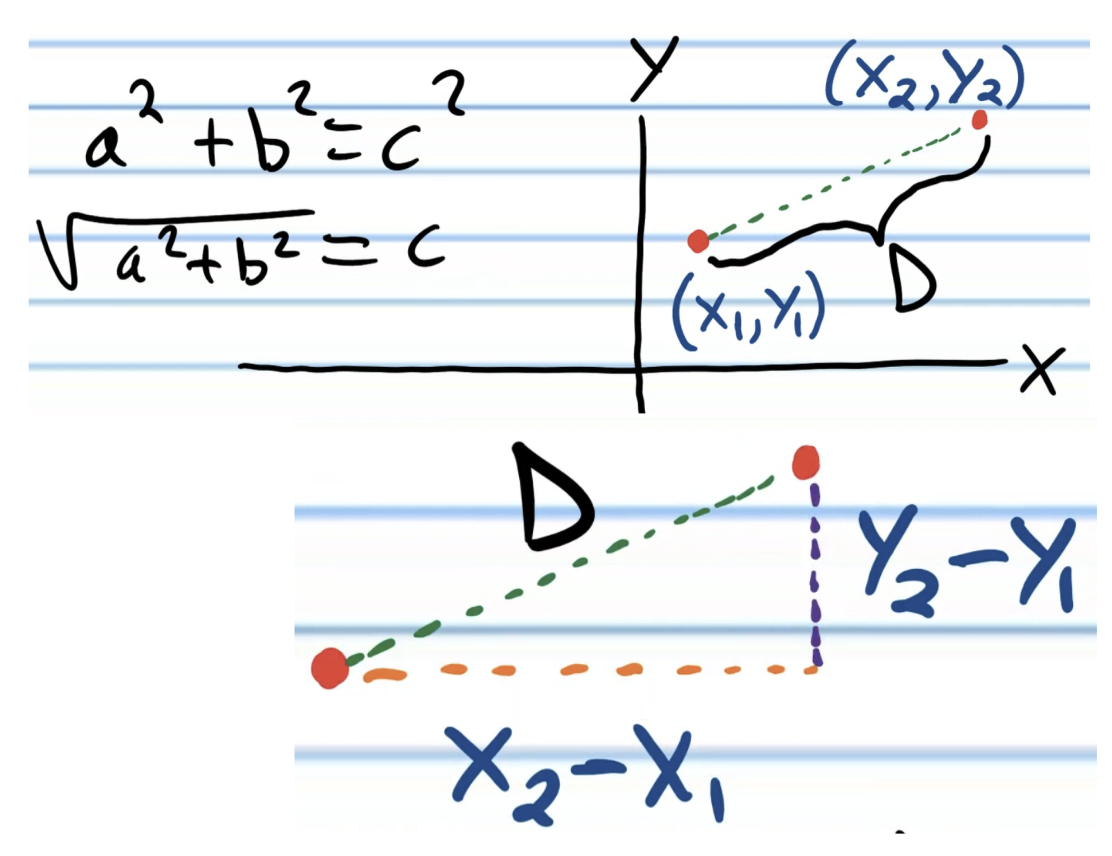 a² + b² = c²
√a²+b² = c
Y
(X₂,Y₂)
(X₁,Y₁)
D
X
D
Y₂-Y₁
X₂-X₁